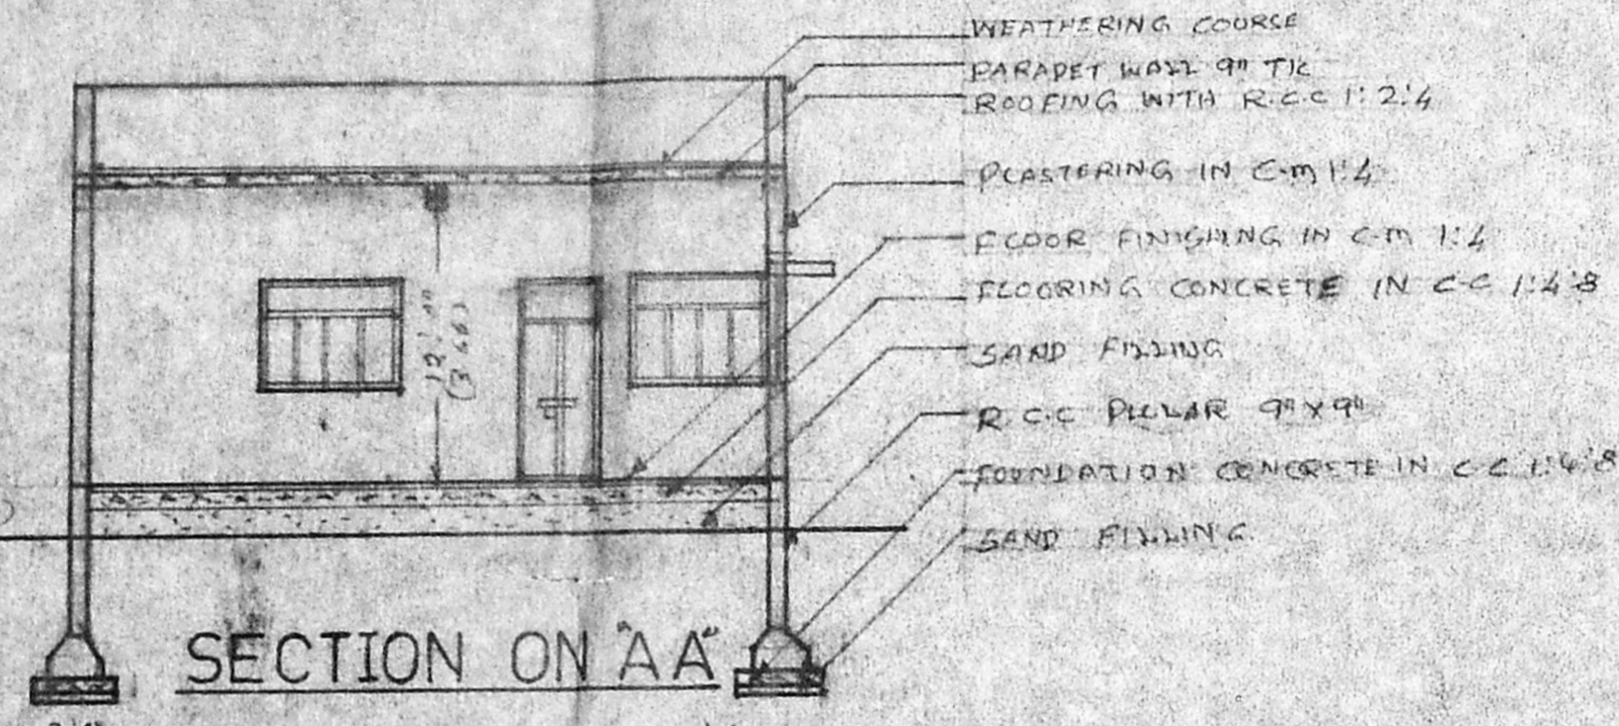 WEATHERING COURSE
PARAPET WALL 9" TK
ROOFING WITH R.C.C 1:2:4
PLASTERING IN C.M 1:4
FLOOR FINISHING IN C.M 1:4
FLOORING CONCRETE IN C.C 1:4:8
SAND FILLING
R.C.C PILLAR 9" X 9"
FOUNDATION CONCRETE IN C C 1:4:8
SAND FILLING.
SECTION ON "AA"